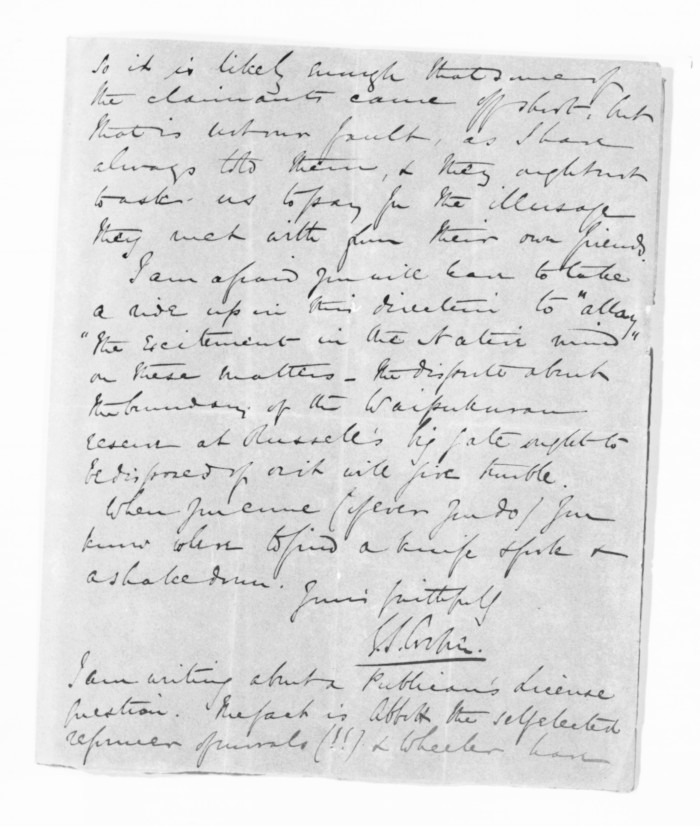 so it is likely enough that some of
the claimants came off short, but
that is not our fault, as I have
always told them, & they ought not
to ask us to pay for the illusage
they met with from their own friends.
I am afraid you will have to take
a ride up in this direction to "allay"
"the excitement in the Native mind"
on these matters - the dispute about
the boundary of the Waipukurau
reserve at Russell's big gate ought to
be disposed of or it will give trouble.
When you come (if ever you do) you
know where to find a knife & fork &
a shake down.
Yours faithfully
I am writing about a Publican's License
question. The fact is Abbott the selfelected
reformer of morals (!!) & Wheeler have